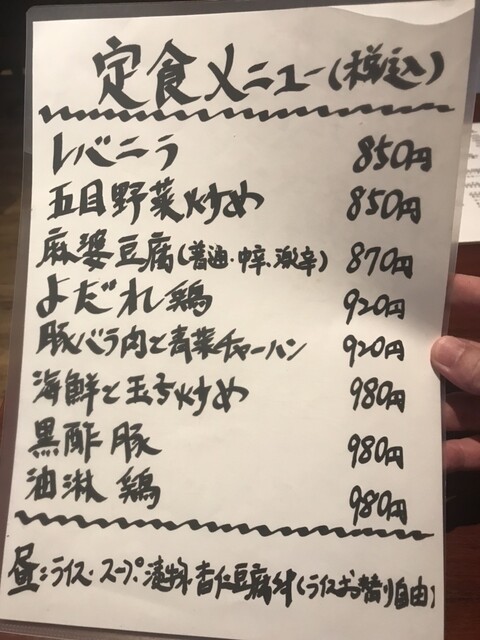 定食メニュー(税込)
レバニラ 850円
五目野菜炒め 850円
麻婆豆腐(普通・中辛、激辛) 870円
よだれ鶏 920円
豚バラ肉と青菜チャーハン 920円
海鮮と玉子炒め 980円
黒酢豚 980円
油淋鶏 980円
昼:ライス・スープ・漬物・杏仁豆腐付(ライスお替り自由)